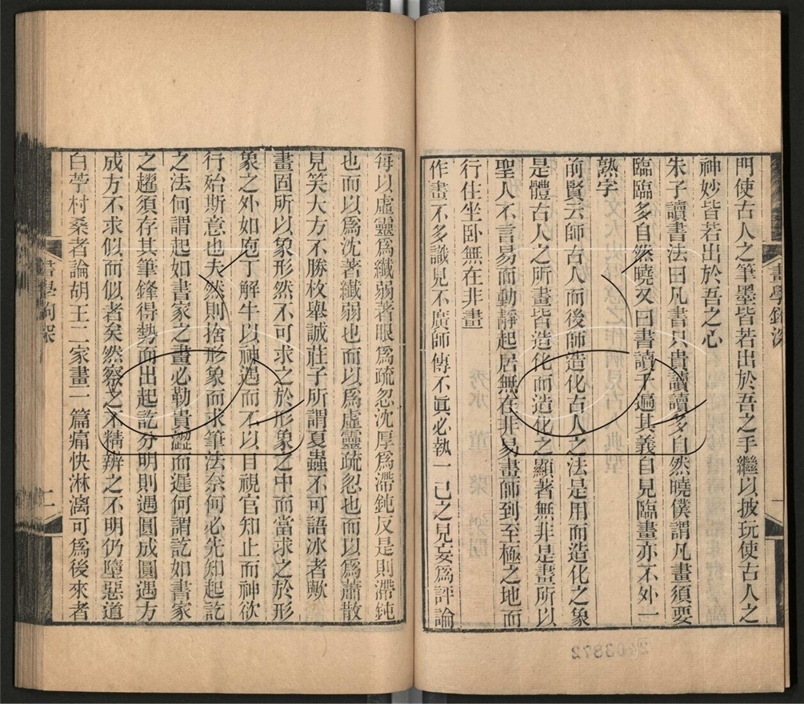 門使古人之筆墨皆若出於吾之手繼以披玩使古人之
神妙皆若出於吾之心
朱子讀書法曰凡書只貴讀讀多自然曉僕謂凡畫須要
臨臨多自然曉又曰書讀千遍其義自見臨畫亦不外一
熟字
前賢云師古人而後師造化古人之法是用而造化之象
是體古人之所畫皆造化而造化之顯著無非是畫所以
聖人不言易而動靜起居無在非易畫師到至極之地而
行住坐卧無在非畫
作畫不多識見不廣師傳不眞必執一己之見妄爲評論
每以虛靈爲纖弱著眼爲疏忽沈厚爲滯鈍反是則滯鈍
也而以爲沈著纖弱也而以爲虛靈疏忽也而以爲蕭散
見笑大方不勝枚舉誠莊子所謂夏蟲不可語冰者歟
畫固所以象形然不可求之於形象之中而當求之於形
象之外如庖丁解牛以神遇而不以目視官知止而神欲
行始斯意也夫然則捨形象而求筆法奈何必先知起訖
之法何謂起如書家之畫必勒貴澀而遲何謂訖如書家
之趯須存其筆鋒得勢而出起訖分明則遇圓成圓遇方
成方不求似而似者矣然察之不精辨之不明仍墮惡道
白苧村桑者論胡王二家畫一篇痛快淋漓可爲後來者
二
2403872